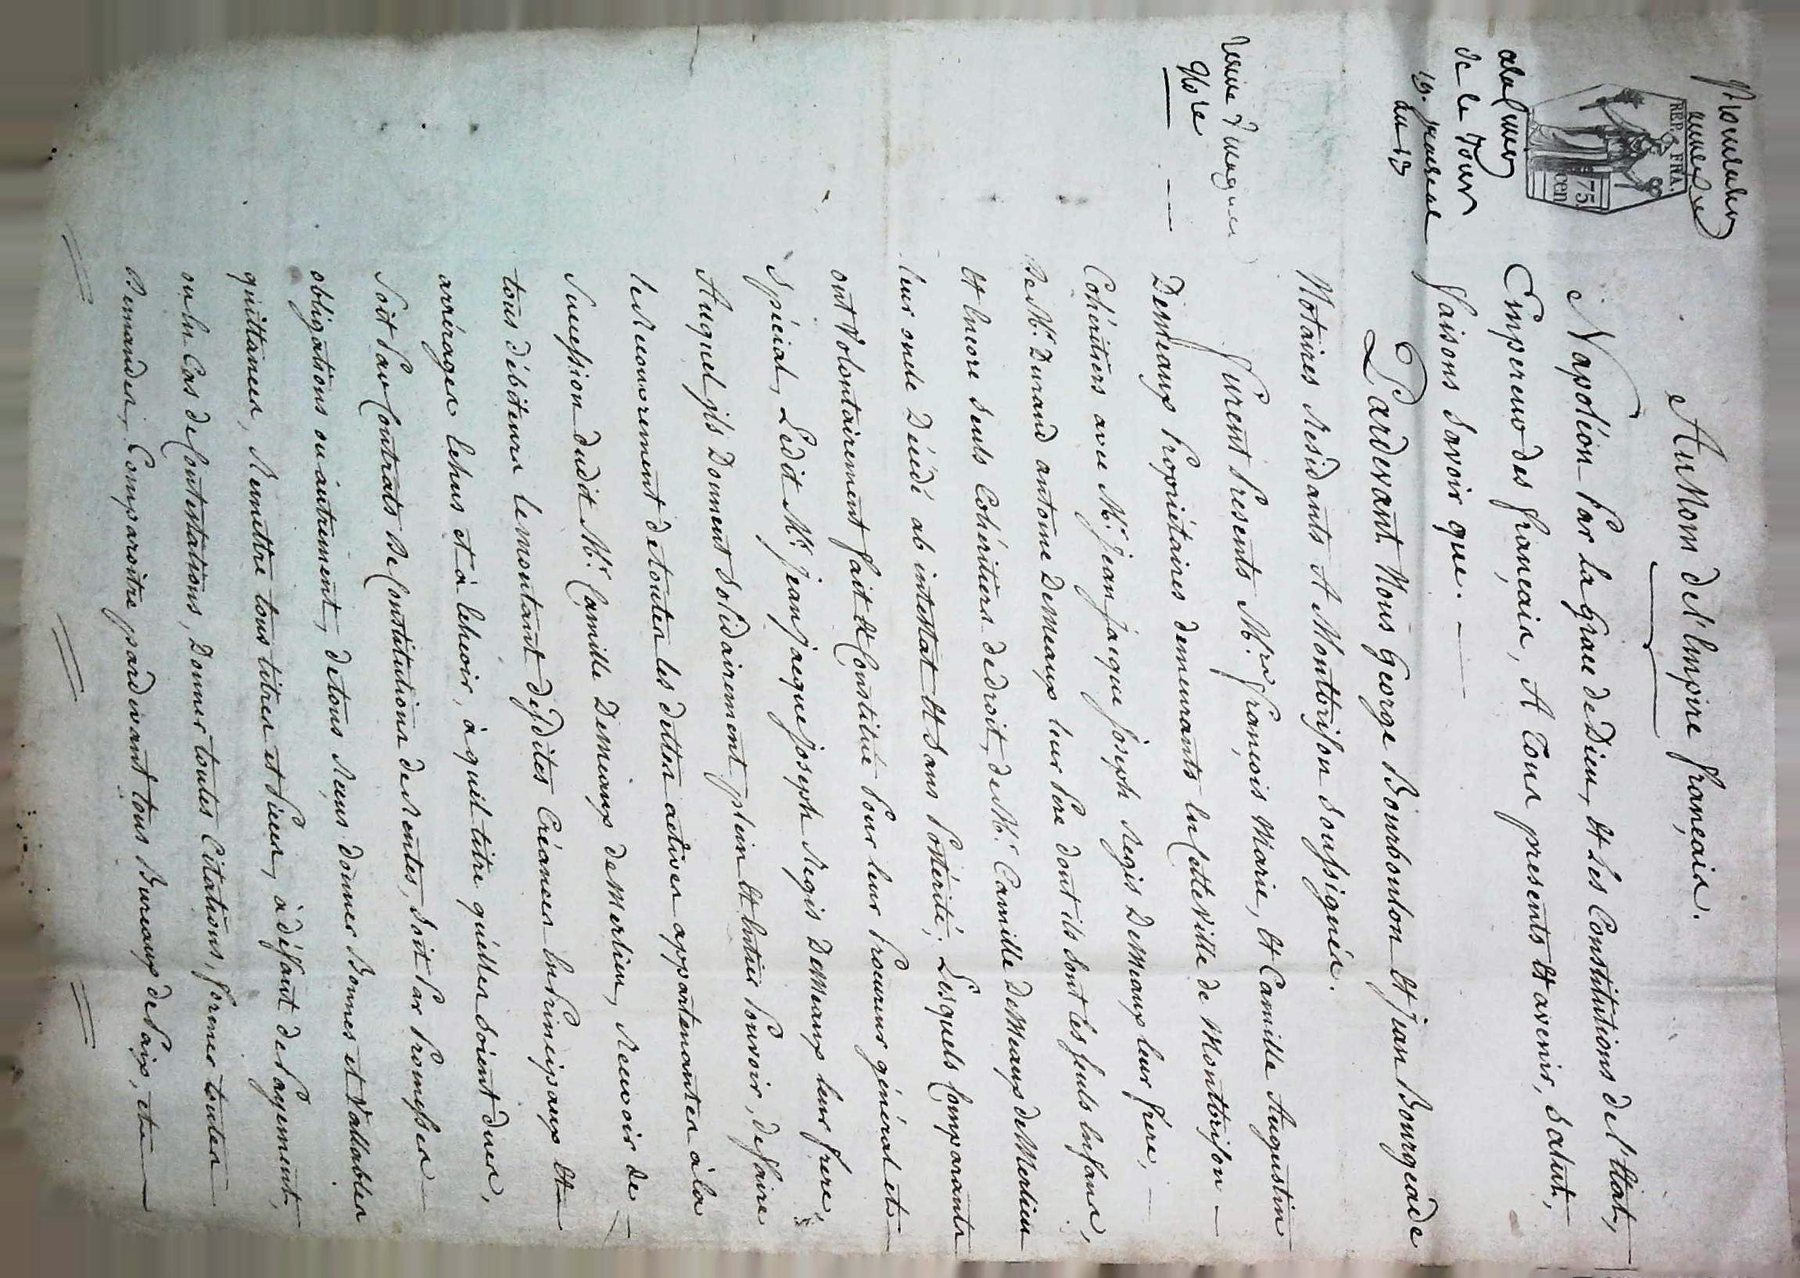 Au Nom de l'Empire français.
Napoléon Par la Grace de Dieu, et Les Constitutions de l'Etat,
Empereur des français, A Tous presents et avenir, Salut,
faisons Savoir que.
Pardevant Nous George Bourboulon et jean Bourgeade
Notaires Residants A Montbrison Soussignés.
furent Presents Mrs. françois Marie, et Camille Augustin
Demeaux Propriétaires demeurants en Cette Ville de Montbrison
Cohéritiers avec Mr. jean jacque joseph Regis DeMeaux leur frere,
de Mr. Durand antoine DeMeaux leur Pere dont ils Sont les Seuls Enfans,
et Encore Seuls Cohéritiers de droit, de Mr. Camille DeMeaux de Merlieu
leur oncle Décédé ab intestat et Sans Postérité; Lesquels Comparants
ont Volontairement fait et Constitué Pour leur Procureur général et
Spécial, Ledit Mr. jean jacque joseph Regis DeMeaux leur frere,
Auquel jls Donnent Solidairement plein et Entier Pouvoir, de faire
le Recouvrement de toutes les dettes actives appartenantes à la
Succession dudit Mr. Camille DeMeaux de Merlieu, Recevoir de
tous débiteurs le montant desdites Créances En Principaux et
arrérages Echus et à Echeoir, à quel titre qu'elles Soient dues,
Soit Par Contrats de Constitutions de Rentes, Soit Par Promesses
obligations ou autrement, de tous Reçus donner Bonnes et Vallables
quittances, Remettre tous titres et Pieces, à défaut de Payement,
ou En Cas de Contestations, Donner toutes Citations, former toutes
Demandes, Comparoître pardevant tous Bureaux de Paix, et
REP. FRA.
75
cen
de le Tour
19.
du 13